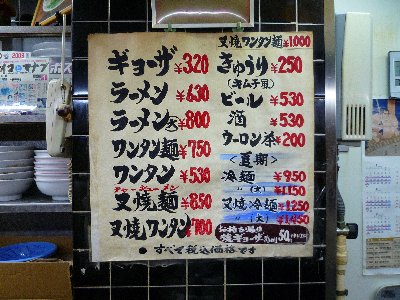 ギョーザ ¥320
ラーメン ¥630
ラーメン大 ¥800
ワンタン麺 ¥750
ワンタン ¥530
チャーシューメン
叉焼麺 ¥850
叉焼ワンタン ¥700
叉焼ワンタン麺 ¥1000
きゅうり ¥250
(キムチ風)
ビール ¥530
酒 ¥530
ウーロン茶 ¥200
<夏期>
冷麺 ¥950
〃 (大) ¥1150
叉焼冷麺 ¥1250
〃 (大) ¥1450
お持ち帰り
焼ギョーザ 50円
• すべて税込価格です
2003